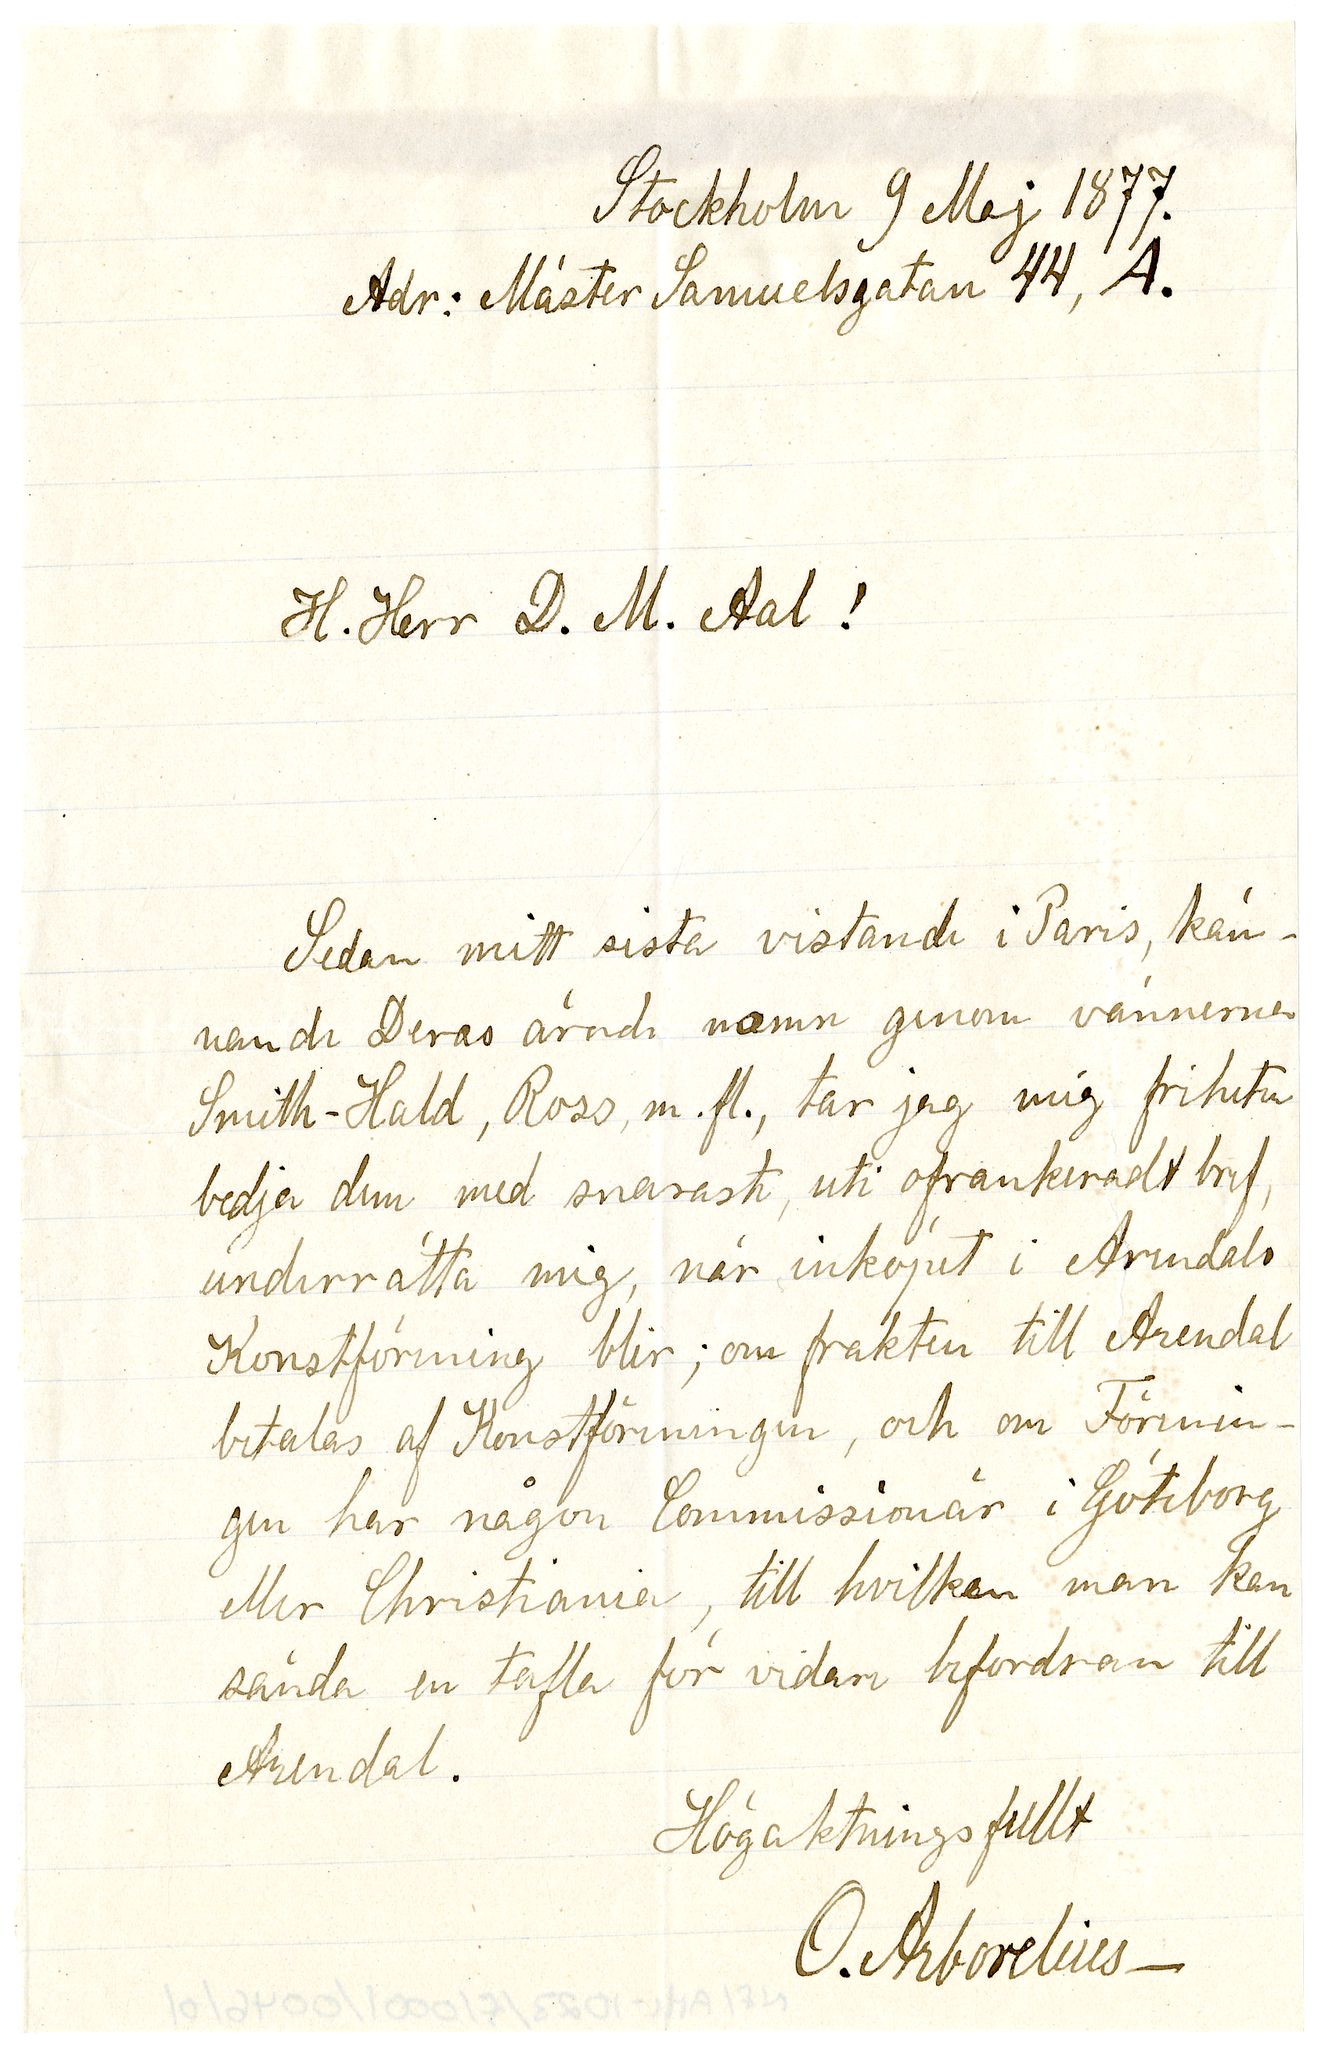 Stockholm 9 Maj 1877.
Adr: Mäster Samuelsgatan 44, A.
H. Herr D. M. Aal!
Sedan mitt sista vistande i Paris, kän-
nande Deras ärade namn genom vännerna
Smith-Hald, Ross, m. fl., tar jag mig friheten
bedja dem med snaraste, uti ofrankeradt bref,
underrätta mig, när inköpet i Arendals
Konstförening blir; om frakten till Arendal
betalas af Konstföreningen, och om Förenin-
gen har någon Commissionär i Göteborg
eller Christiania, till hvilken man kan
sända en tafla för vidare befordran till
Arendal.
Högaktningsfullt
O. Arborelius—